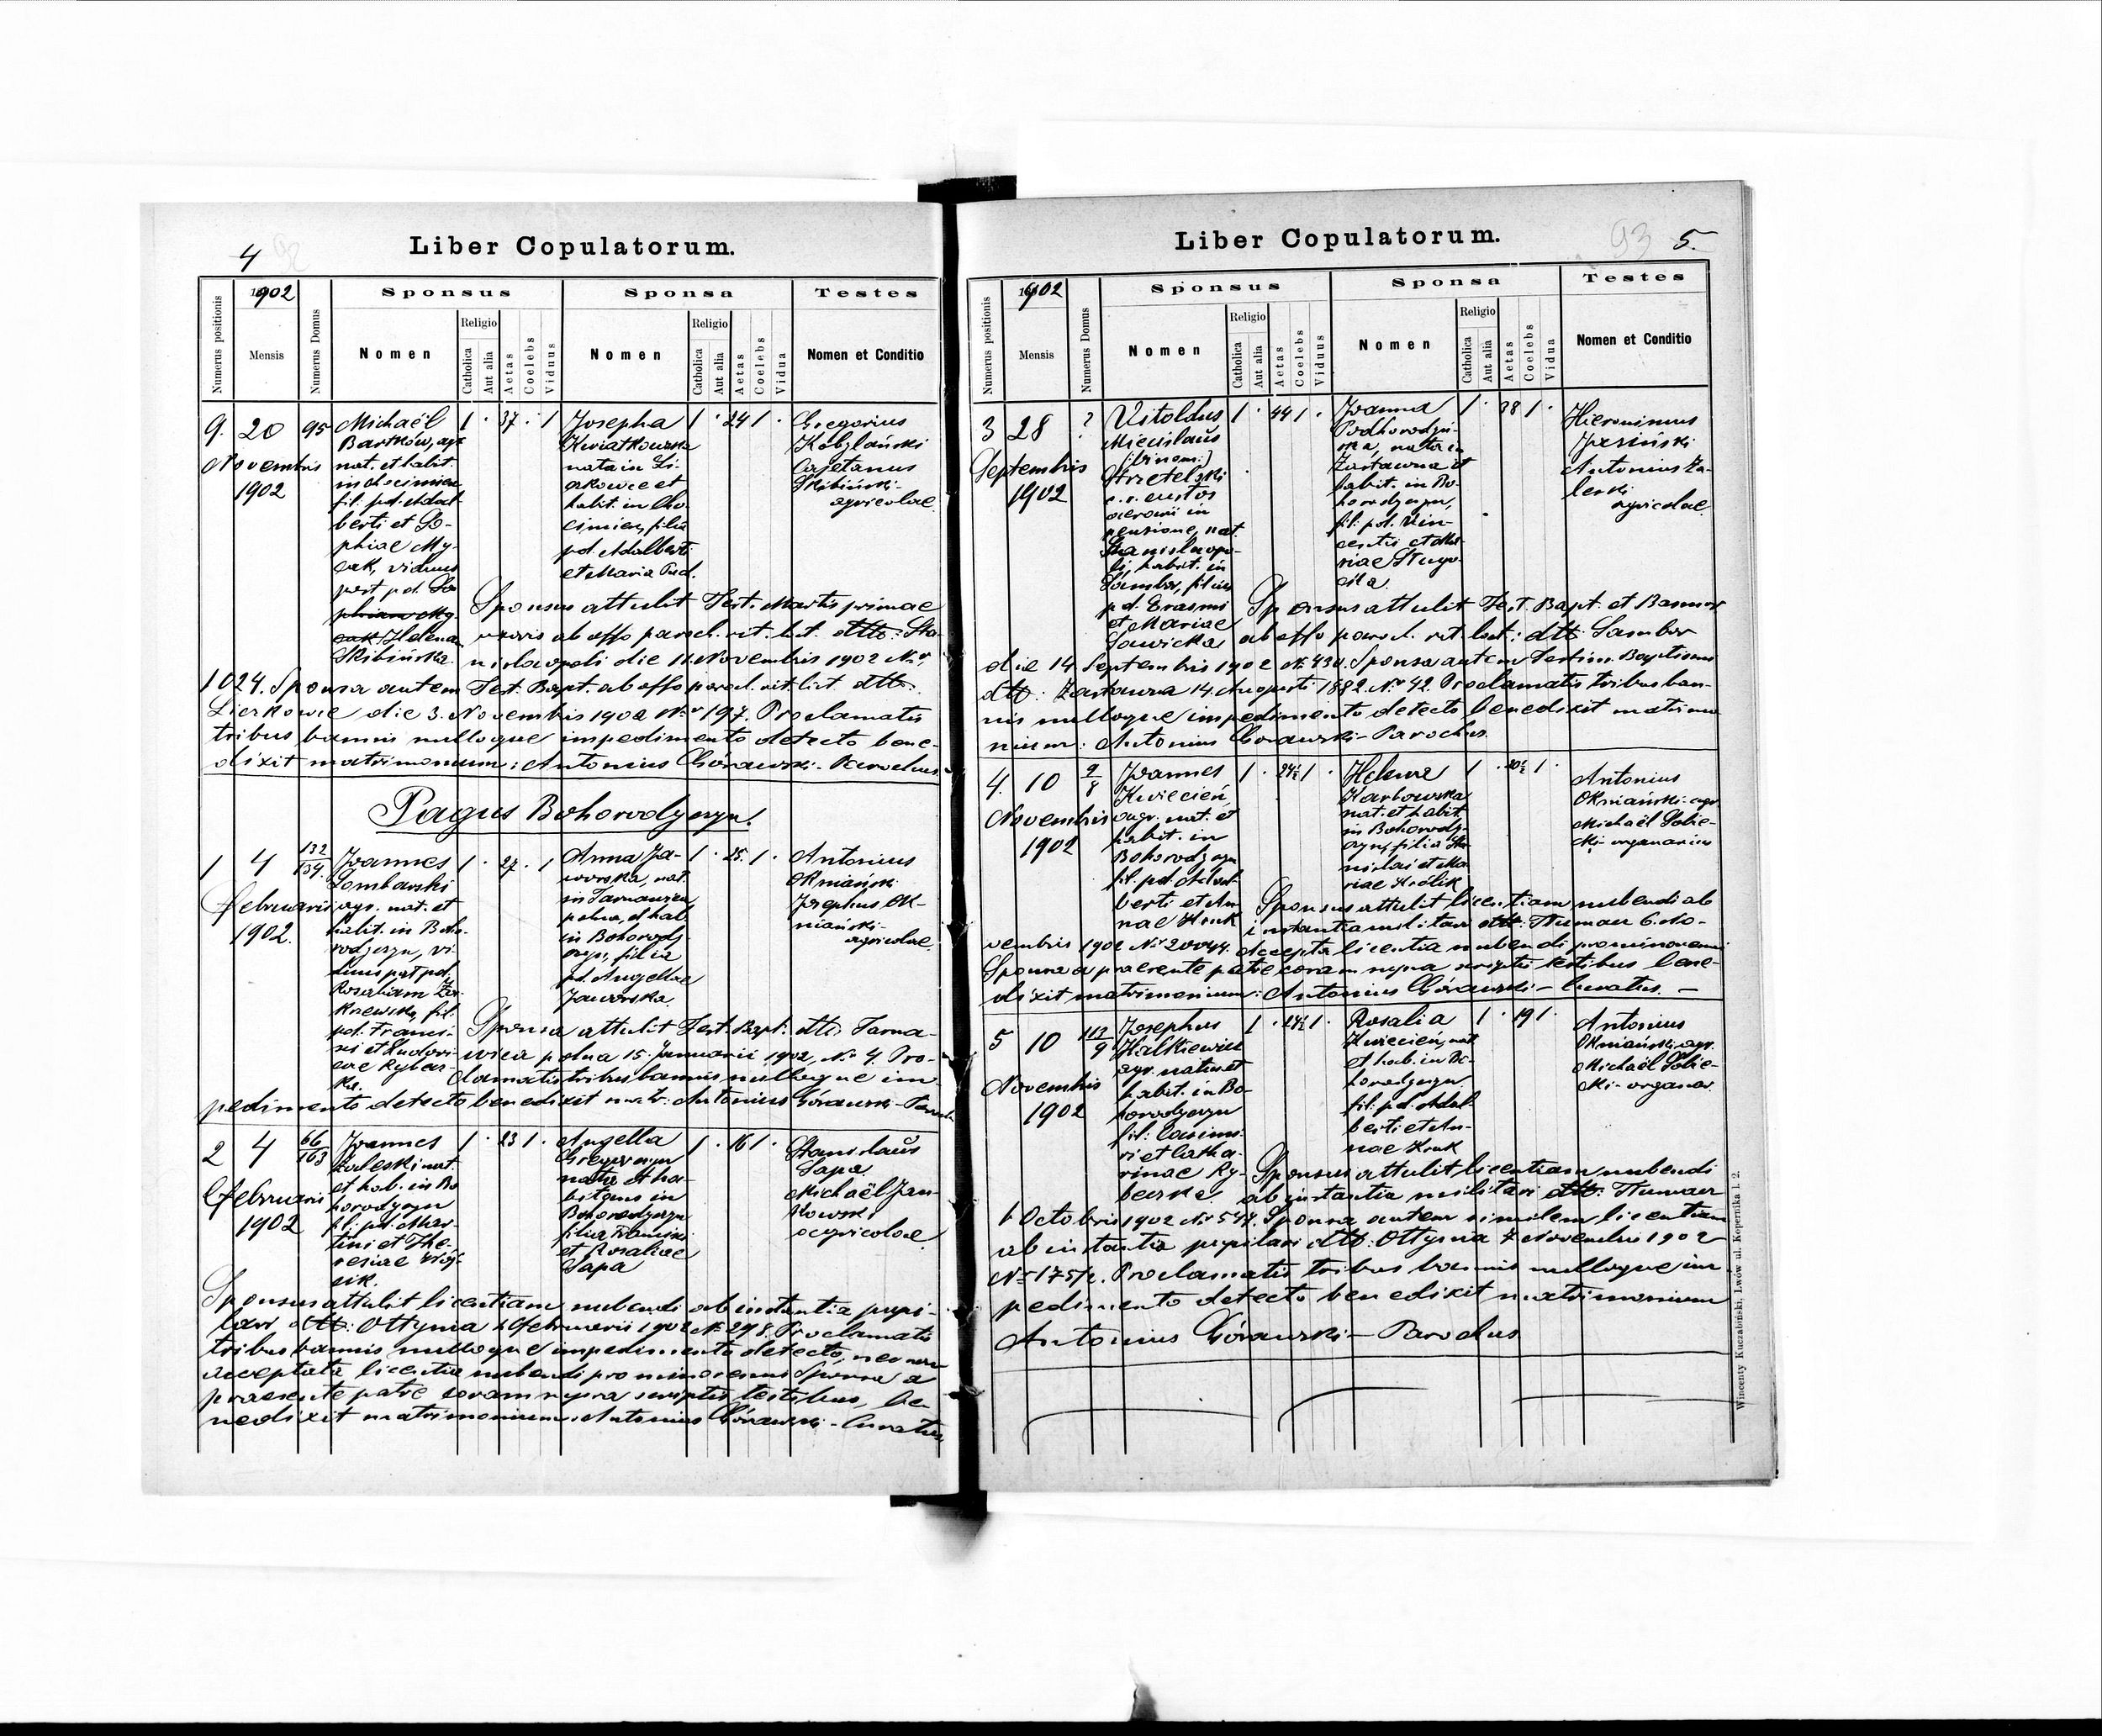 4
Liber Copulatorum.
Numerus positionis
1902
Mensis
Numerus Domus
Sponsus
Sponsa
Testes
Nomen
Religio
Catholica
Aut alia
Aetas
Coelebs
Viduus
Nomen
Religio
Catholica
Aut alia
Aetas
Coelebs
Vidua
Nomen et Conditio
9. 20 95
Novembris
1902
Michaël
Bartków, agr.
nat. et habit.
in Chocimierz
fil. pd. Adal-
berti et So-
phiae My-
cak, viduus
post pd. So
phiam My
cak Helena
Skibińska.
1 . 37 . 1
Josepha
Kwiatkowska
nata in
et
habit. in Cho-
cimierz, filia
pd. Adalberti
et Maria
1 . 24 1 .
Gregorius
Kobylański
Cajetanus
Skibiński-
agricolae.
Sponsus attulit Test. Mortis primae
uxoris ab offo paroch. rit. lat. dtto: Sta-
nislaopoli die 11. Novembris 1902 Nr.
1024. Sponsa autem Test. Bapt. ab offo paroch. rit. lat. dtto.
die 3. Novembris 1902 Nr. 197. Proclamatis
tribus bannis nulloque impedimento detecto bene-
dixit matrimonium: Antonius Górawski - Parochus.
Pagus Bohorodyczyn.
1 4 132/134.
Februaris
1902.
Joannes
Lombarski
agr. nat. et
habit. in Boho-
rodyczyn, vi-
duus post pd.
Rosaliam
fil.
pd. Francis-
ci et Ludovi-
cae Rybar-
ka.
1 . 27 . 1
Anna Ja-
worska, nat.
in
polna, et hab.
in Bohorody-
czyn, filia
pd. Angellae
Jaworska.
1 . 25. 1 .
Antonius
Okniański
Josephus Ok-
niański-
agricolae.
Sponsa attulit Test. Bapt. dtto Tarna-
wica polna 15. Januarii 1902, Nr. 4. Pro-
clamatis tribus bannis nulloque im-
pedimento detecto benedixit matr: Antonius Górawski - Paroch.
2 4 66/163
Februaris
1902
Joannes
Zaleski nat.
et hab. in Bo
horodyczyn
fil. pd. Mar-
tini et The-
resiae Wój-
cik.
1 . 23 1 .
Angella
nata et ha-
bitans in
Bohorodyczyn
filia Francisci
et Rosaliae
Sapa
1 . 16 1 .
Stanislaus
Sapa
Michaël Jan-
kowski
agricolae.
Sponsus attulit licentiam nubendi ab instantia pupi-
lari dtto: Ottynia Februaris 1902 Nr. 298. Proclamatis
tribus bannis nulloque impedimento detecto, nec non
accepta licentia nubendi pro minorenni Sponsa a
praesente patre coram supra scriptis testibus, be-
nedixit matrimonium: Antonius Górawski - Curatus
Liber Copulatorum.
93 5.
Numerus positionis
1902
Mensis
Numerus Domus
Sponsus
Sponsa
Testes
Nomen
Religio
Catholica
Aut alia
Aetas
Coelebs
Viduus
Nomen
Religio
Catholica
Aut alia
Aetas
Coelebs
Vidua
Nomen et Conditio
3 28 ?
Septembris
1902
Vitoldus
Miecislaus
(: binom :)
Strzetelski
c. r. custos
in
pensione, nat.
Stanislaopo-
li, habit. in
Sambor, filius
pd. Erasmi
et Mariae
Sawicka
1 . 44 1 .
Joanna
Podhorodyń-
ska, nata in
Zastawna et
habit. in Bo-
horodyczyn,
fil. pd. Vin-
centii et Ma-
riae
1 . 38 1 .
Hieronimus
Jasiński
Antonius Za-
leski
agricolae.
Sponsus attulit Test. Bapt. et Bannor
ab offo paroch. rit. lat: dtto Sambor
die 14 Septembris 1902 Nr. 434. Sponsa autem Testim. Baptismi
dtto: Zastawna 14. Augusti 1882. Nr. 42. Proclamatis tribus ban-
nis nulloque impedimento detecto benedixit matrimo-
nium: Antonius Górawski - Parochus.
4. 10 9/8
Novembris
1902
Joannes
Kwiecień,
agr. nat. et
habit. in
Bohorodyczyn
fil. pd. Adal-
berti et An-
nae Kruk
1 . 24½ 1 .
Helena
Karbowska
nat. et habit.
in Bohorody-
czyn, filia Sta-
nislai et Ma-
riae Królik
1 . 20½ 1 .
Antonius
Okniański - agr.
Michaël Sobie-
ski - organarius
Sponsus attulit licentiam nubendi ab
instantia militari dtto: Tłumacz 6. No-
vembris 1902 Accepta licentia nubendi pro minorenni
Sponsa a praesente patre coram supra scriptis testibus bene-
dixit matrimonium: Antonius Górawski - Curatus. -
5 10 112/9
Novembris
1902
Josephus
Halkiewicz
agr. natus et
habit. in Bo-
horodyczyn
fil: Casimi-
ri et Catha-
rinae Ry-
barska.
1 . 24½ 1 .
Rosalia
Kwiecień, nat.
et hab. in Bo-
horodyczyn
fil. pd. Adal-
berti et An-
nae Kruk
1 . 19 1 .
Antonius
Okniański, agr.
Michaël Sobie-
ski - organar.
Sponsus attulit licentiam nubendi
ab instantia militari dtto: Tłumacz
1 Octobris 1902 Nr. 547. Sponsa autem similem licentiam
ab instantia pupilari dtto: Ottynia 7 Novembris 1902
Nr 175/2. Proclamatis tribus bannis nulloque im-
pedimento detecto benedixit matrimonium
Antonius Górawski - Parochus.
Wincenty Kuczabiński, Lwów ul. Kopernika l. 2.